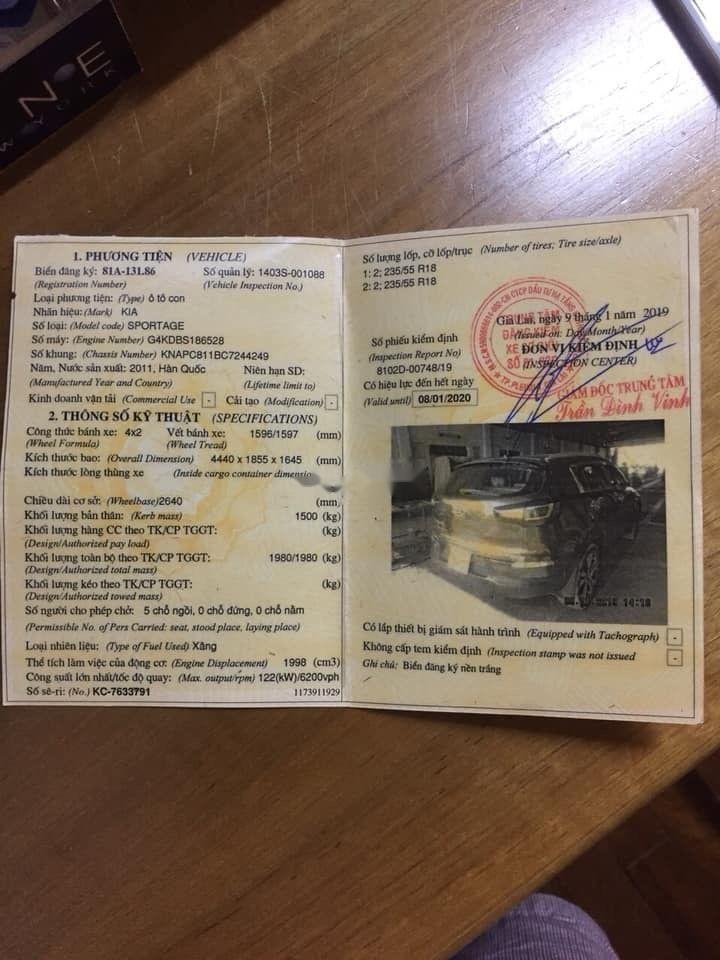 NE
W YORK
1. PHƯƠNG TIỆN (VEHICLE)
Biển đăng ký: 81A-131.86 Số quản lý: 1403S-001088
(Registration Number) (Vehicle Inspection No.)
Loại phương tiện: (Type) ô tô con
Nhãn hiệu: (Mark) KIA
Số loại: (Model code) SPORTAGE
Số máy: (Engine Number) G4KDBS186528
Số khung: (Chassis Number) KNAPC811BC7244249
Năm, Nước sản xuất: 2011, Hàn Quốc Niên hạn SD:
(Manufactured Year and Country) (Lifetime limit to)
Kinh doanh vận tải (Commercial Use - Cải tạo (Modification) -
2. THÔNG SỐ KỸ THUẬT (SPECIFICATIONS)
Công thức bánh xe: 4x2 Vết bánh xe: 1596/1597 (mm)
(Wheel Formula) (Wheel Tread)
Kích thước bao: (Overall Dimension) 4440 x 1855 x 1645 (mm)
Kích thước lòng thùng xe (Inside cargo container dimension
Chiều dài cơ sở: (Wheelbase)2640 (mm)
Khối lượng bản thân: (Kerb mass) 1500 (kg)
Khối lượng hàng CC theo TK/CP TGGT: (kg)
(Design/Authorized pay load)
Khối lượng toàn bộ theo TK/CP TGGT: 1980/1980 (kg)
(Design/Authorized total mass)
Khối lượng kéo theo TK/CP TGGT: (kg)
(Design/Authorized towed mass)
Số người cho phép chở: 5 chỗ ngồi, 0 chỗ đứng, 0 chỗ nằm
(Permissible No. of Pers Carried: seat, stood place, laying place)
Loại nhiên liệu: (Type of Fuel Used) Xăng
Thể tích làm việc của động cơ: (Engine Displacement) 1998 (cm3)
Công suất lớn nhất/tốc độ quay: (Max. output/rpm) 122(kW)/6200vph
Số sê-ri: (No.) KC-7633791 1173911929
Số lượng lốp, cỡ lốp/trục (Number of tires; Tire size/axle)
1: 2; 235/55 R18
2: 2; 235/55 R18
Gia Lai, ngày 9 tháng 1 năm 2019
(Issued on: Day/Month/Year)
Số phiếu kiểm định ĐƠN VỊ KIỂM ĐỊNH
(Inspection Report No) (INSPECTION CENTER)
8102D-00748/19
Có hiệu lực đến hết ngày
(Valid until) 08/01/2020
TRUNG TÂM
ĐĂNG KIỂM
GIÁM ĐỐC TRUNG TÂM
Trần Đình Vinh
Có lắp thiết bị giám sát hành trình (Equipped with Tachograph) -
Không cấp tem kiểm định (Inspection stamp was not issued -
Ghi chú: Biển đăng ký nền trắng